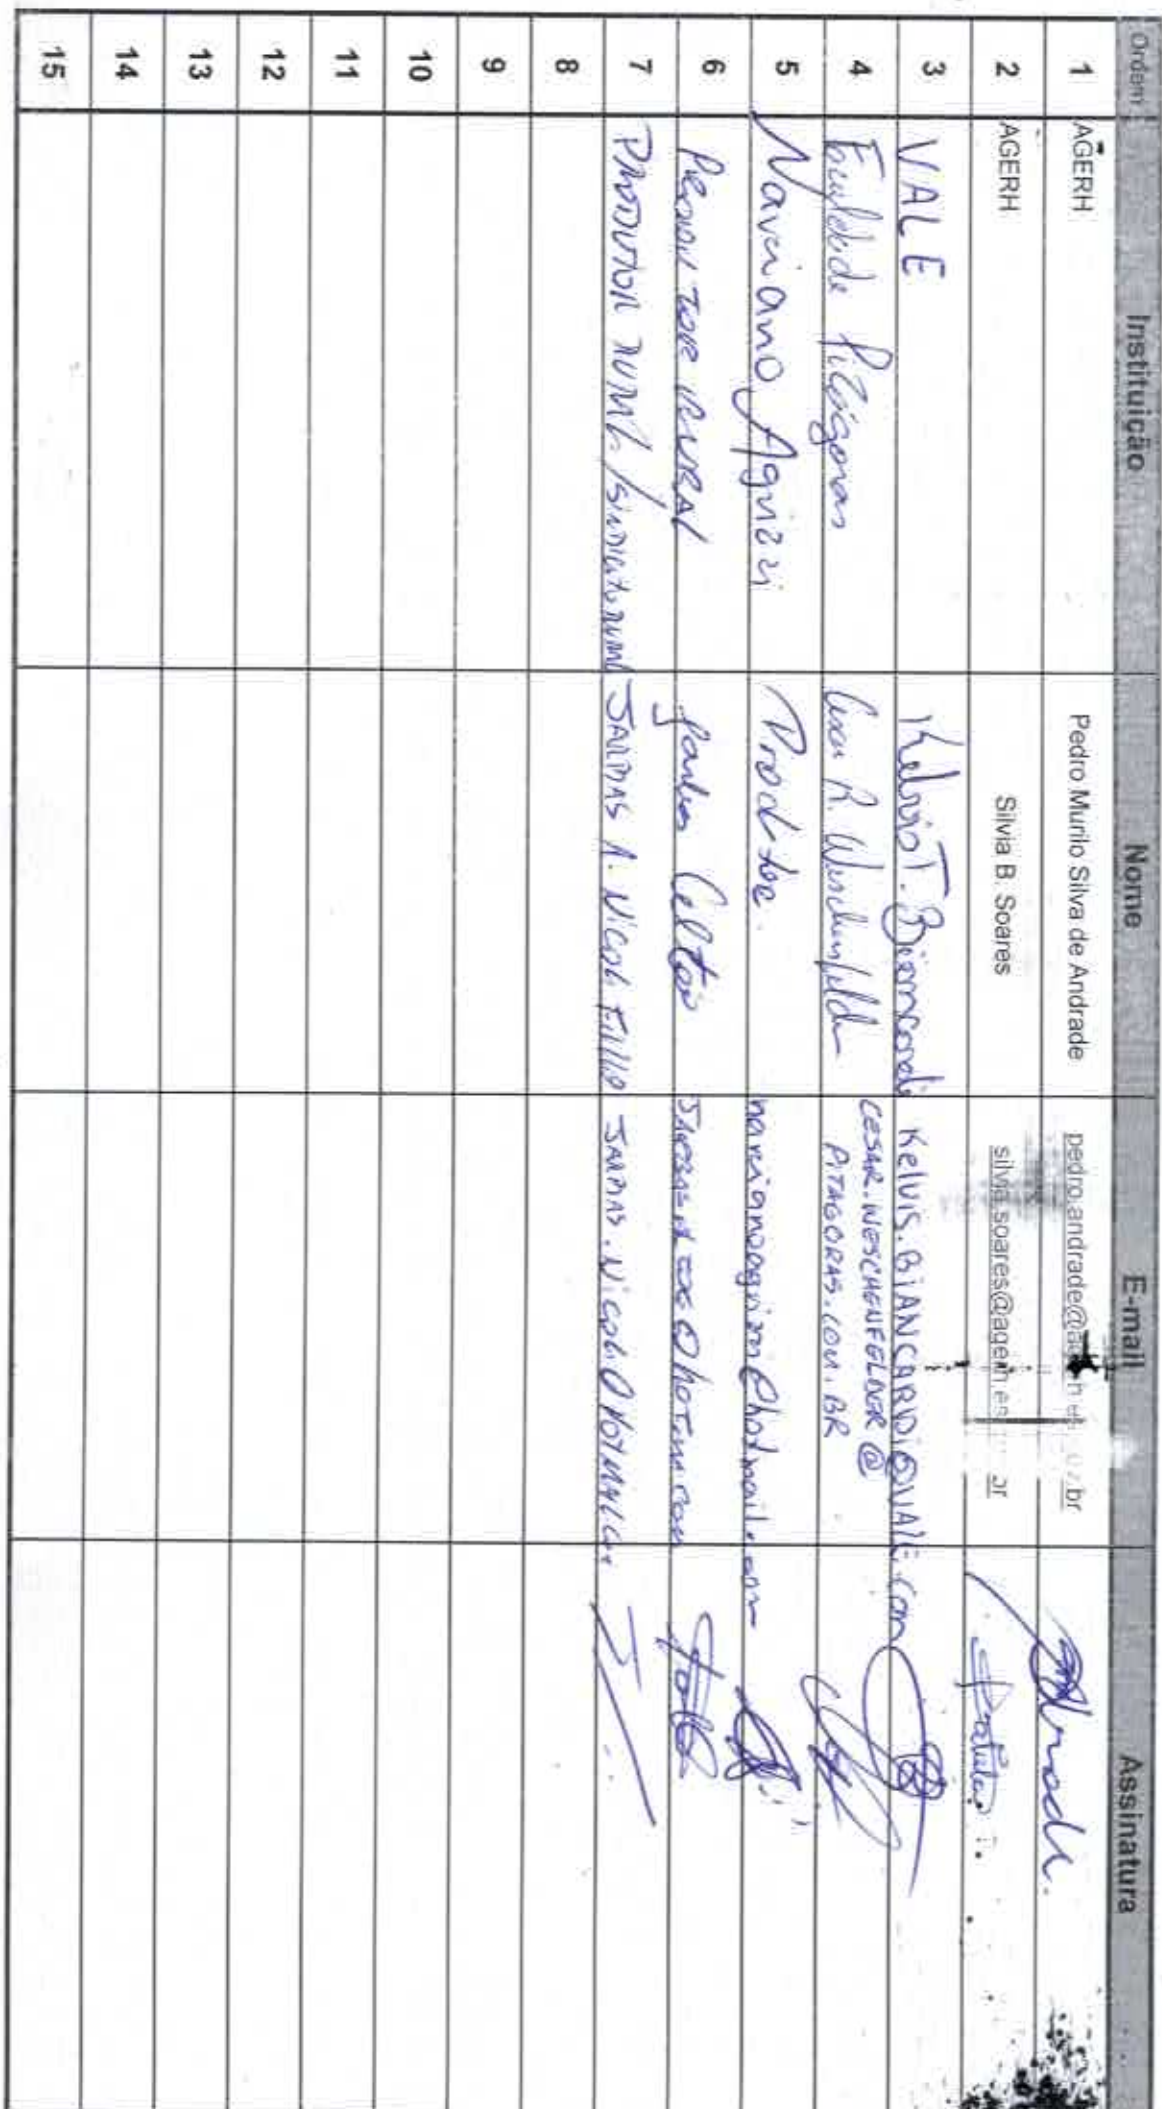 Ordem Instituição Nome E-mail Assinatura
1 AGERH Pedro Murilo Silva de Andrade pedro.andrade@
2 AGERH Silvia B. Soares silvia.soares@agerh.es
3 VALE Kelvis T. Biancardi Kelvis.BiANCARDi@VALE.com
4 Faculdade Pitágoras R. Weschenfelder CESAR.WESCHENFELDER@
PITAGORAS.COM.BR
5 Narciano Agrizzi narcianoagrizzi@hotmail.com
6 RURAL
7 PRODUTOR RURAL/SINDICATO RURAL JARBAS A. NICOLI FILHO JARBAS.NiCOLi@HOTMAIL.COM
8
9
10
11
12
13
14
15